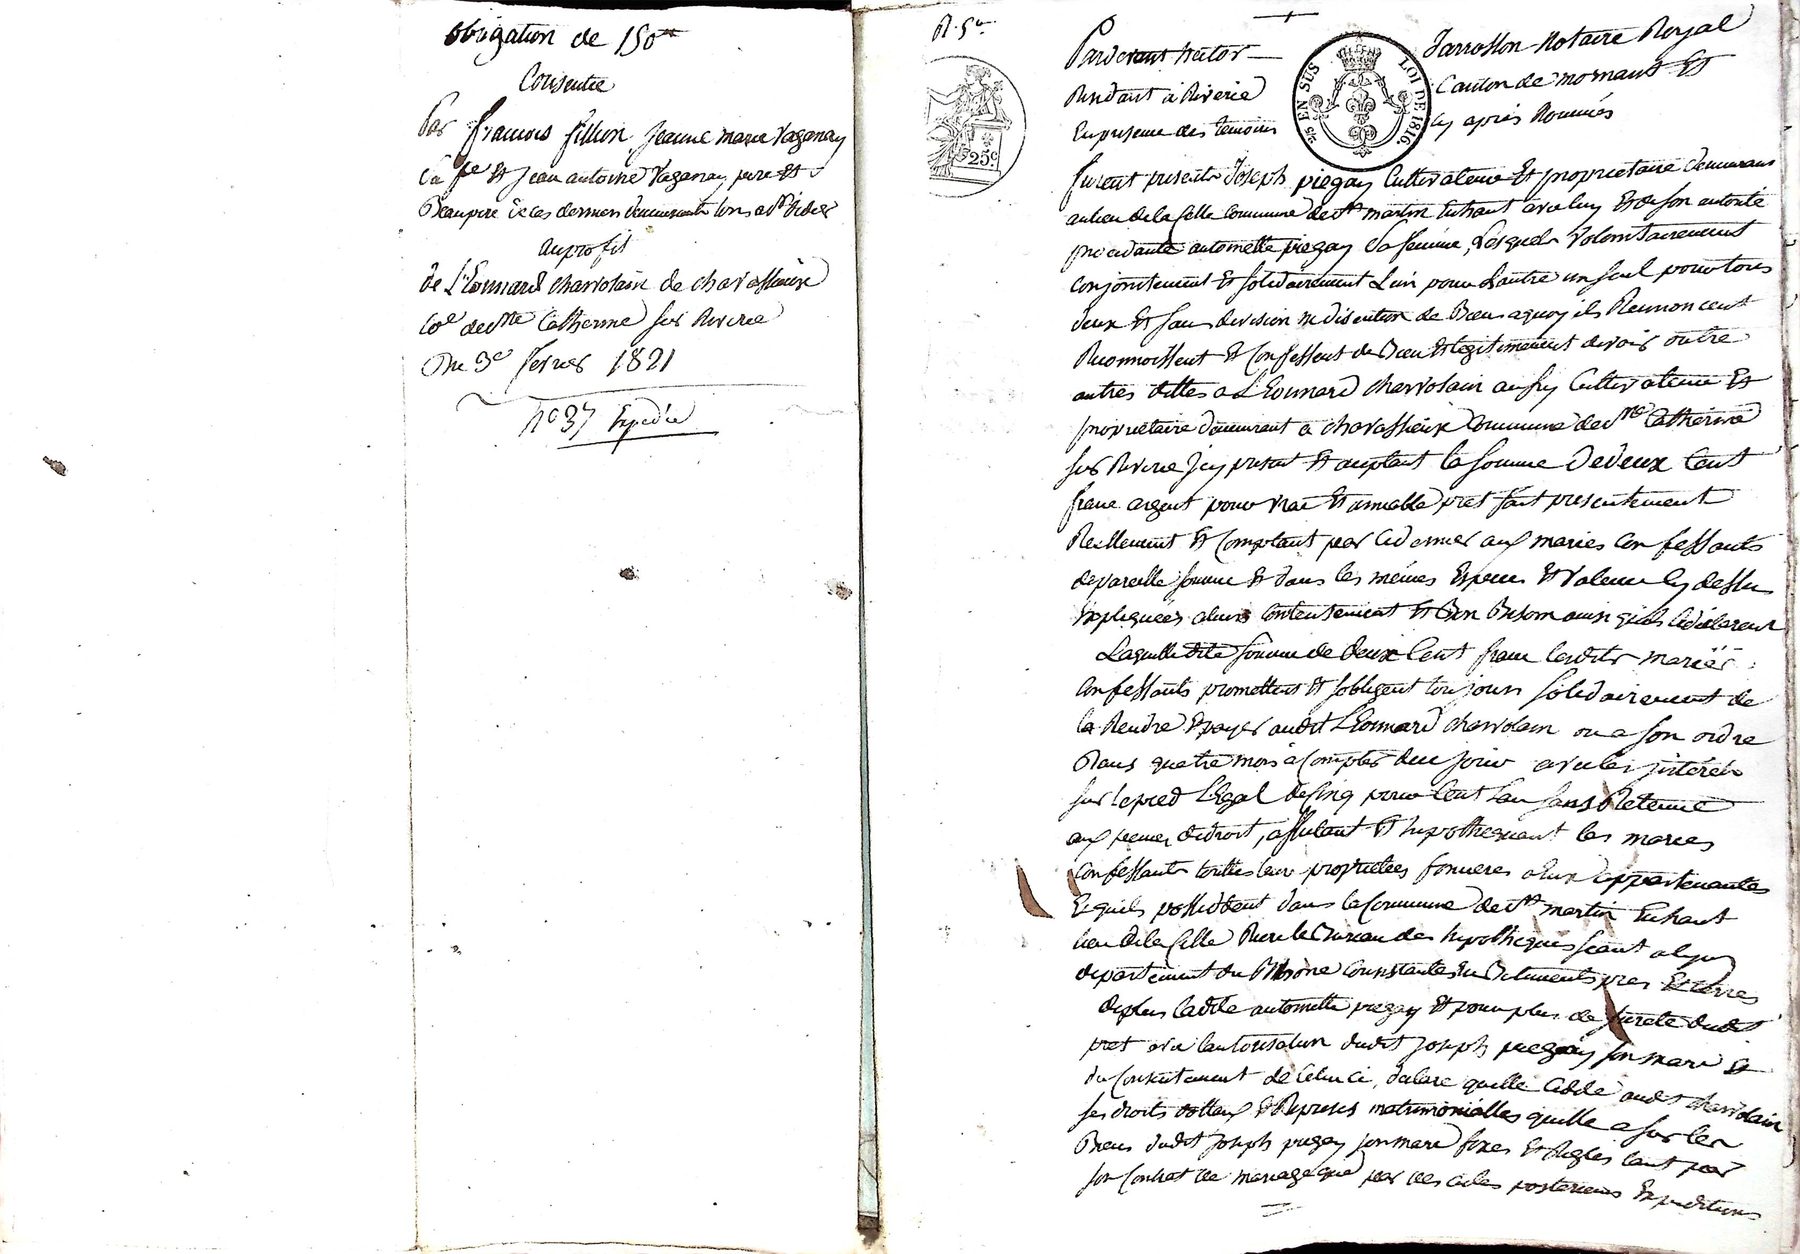 obligation de 150 f
Consentie
Par françois fillion jeanne marie Vaganay
Sa fe Et jean antoine Vaganay pere Et
Beaupere de ces derniers demeurants tous a St Didier
au profit
de Léonnard charvolain de chavassieux
Coe de Ste Catherine sur Riverie
Du 3e fevrier 1821
No 37 Expediée
R. 5
25c
25 EN SUS LOI DE 1816.
Pardevant hector Jarrosson Notaire Royal
Residant à Riverie Canton de mornant Et
En presence des temoins cy après Nommés
furent presents Joseph piegay Cultivateur Et proprietaire demeurant
au lieu de la felle Commune de St martin Enhaut avec luy Et de son autorité
procedante antoinette piegay Sa femme, Lesquels Volontairement
conjointement Et solidairement L'un pour L'autre un seul pour tous
deux Et sans division ni discution de Biens a quoy ils Renoncent
Reconnoissent Et Confessent de Bien Et legitimement devoir outre
autres dettes a Léonnard charvolain aussy Cultivateur Et
proprietaire demeurant a chavassieux Commune de Ste Catherine
sur Riverie Jcy present Et acceptant la somme De deux Cent
franc argent pour vrai Et amiable pret fait presentement
Reellement Et Comptant par ce dernier aux mariés Confessants
de pareille somme Et dans les mêmes Especes Et Valeurs cy dessus
Expliquées a leurs Contentement Et Bon Besoin ainsi quils le déclarent
Laquelle dite somme de deux Cent franc lesdits mariés
Confessants promettent Et s'obligent toujours solidairement de
la Rendre Et payer audit Léonnard charvolain ou a son ordre
Dans quatre mois à Compter de ce jour avec les jntérêts
sur le pied Légal de Cinq pour Cent L'an sans Retenue
aux peines de droit, affectant Et hypothequant les mariés
Confessants toutes leurs proprietées foncieres a Eux appartenantes
Et quils possedent dans la Commune de St martin Enhaut
lieu de la felle Riere le Bureau des hypotheques séant a lyon
departement du Rhone Consistantes En Batiments prés Et terres
de plus ladite antoinette piegay Et pour plus de sureté dudit
pret avec l'autorisation dudit joseph piegay son mari Et
du Consentement de Celui ci, declare quelle Cedde audit charvolain
ses droits dottaux Et Reprises matrimonialles quelle a sur les
Biens dudit joseph piegay son mari fixes Et Reglés tant par
son Contrat de mariage que par des actes posterieurs Expeditions